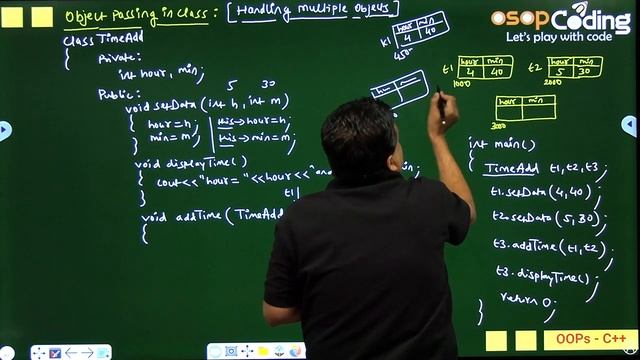 Object Passing in Class : [Handling Multiple Objects]
class TimeAdd
{ Private:
int hour, min;
Public:
5 30
void setData (int h, int m)
{ hour=h; this→hour=h;
min=m; this→min=m;
}
void displayTime()
{ cout<<"hour="<<hour<<"and min;
}
t1
void addTime (TimeAdd
{
k1 hour min
4 40
450
t1 hour min
4 40
1000
t2 hour min
5 30
2000
hour min
3000
int main()
{ TimeAdd t1,t2,t3;
t1.setData(4,40);
t2.setData(5,30);
t3.addTime(t1,t2);
t3.displayTime();
return 0;
}
OSOP Coding
Let's play with code
OOPs - C++